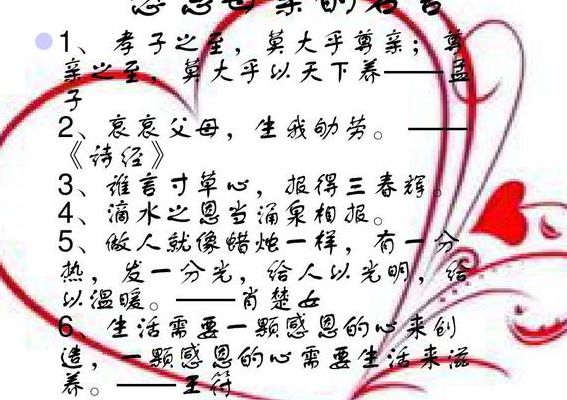 感恩母亲的名言
1、孝子之至，莫大乎尊亲；尊
亲之至，莫大乎以天下养——孟
子
2、哀哀父母，生我劬劳。——
《诗经》
3、谁言寸草心，报得三春辉。
4、滴水之恩当涌泉相报。
5、做人就像蜡烛一样，有一分
热，发一分光，给人以光明，给
以温暖。——肖楚女
6、生活需要一颗感恩的心来创
造，一颗感恩的心需要生活来滋
养。——王符